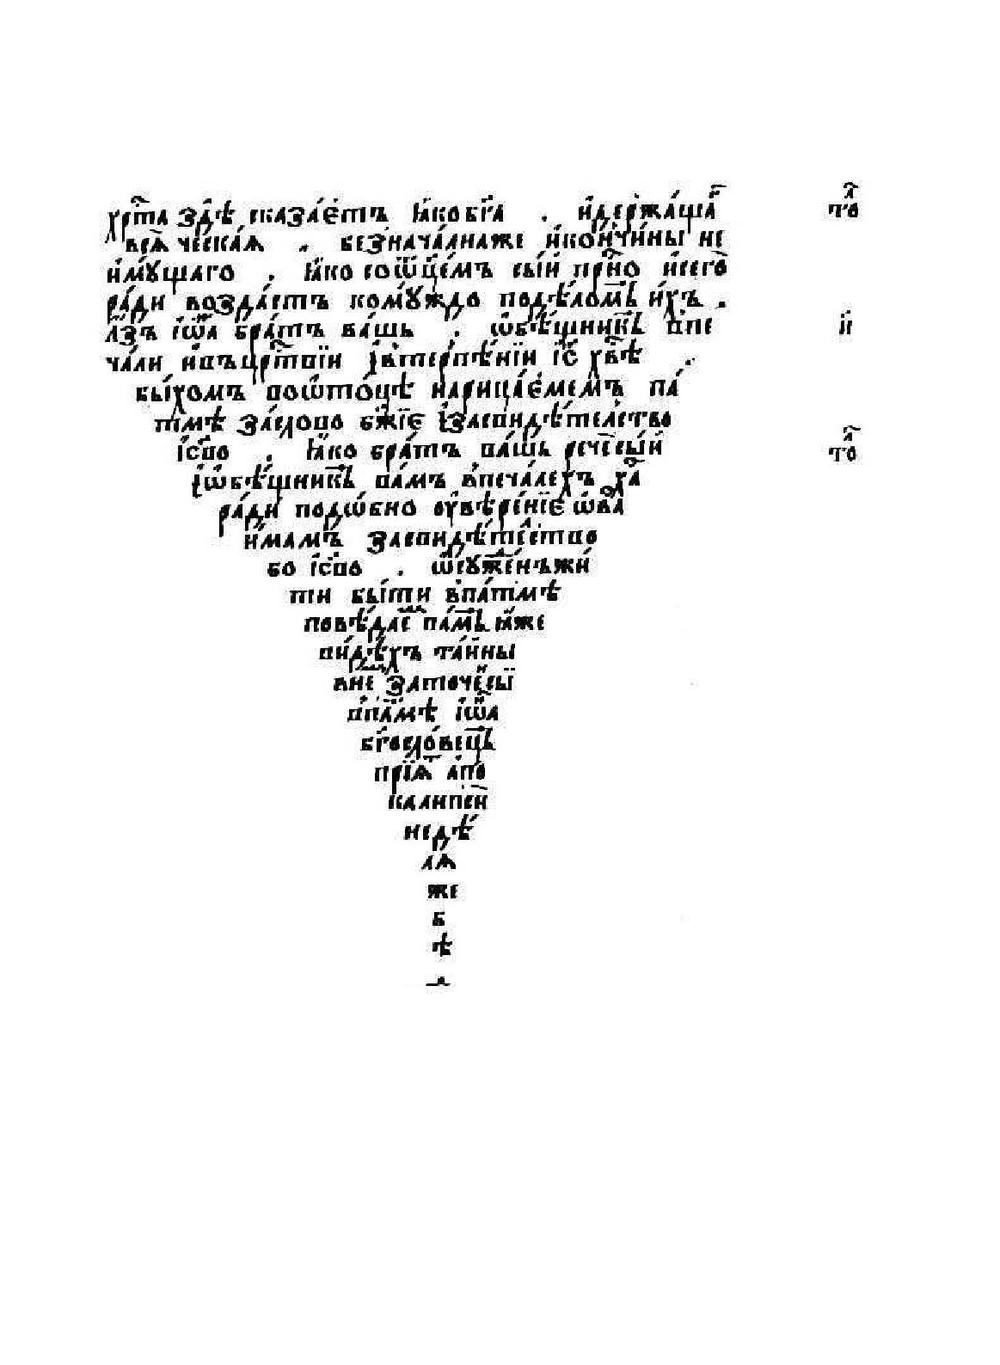 хрⷭ҇та здѣ сказа́етъ ꙗ҆́ко бг҃а . и҆держа́щаⷢ҇ тоⷧ҇
всѧ́ческаѧ . безнача́лнаже и҆кончи́ны не
и҆мꙋ́щаго . ꙗ҆́ко соѿц҃е́мъ сы́й прⷭ҇но и҆сегѡ̀
ра́ди возда́стъ комꙋ́ждо подѣло́мⸯ и҆́хъ .
а҆́зъ і҆ѡ҃а бра́тъ ва́шъ . ѡ҆бѣ́щникⸯ впе и҃
ча́ли и҆въцрⷭ҇твіи и҆втерпѣ́нїи і҆с҃ хв҃ѣ .
бы́хомъ воѻ҆́тоцѣ нарица́емемъ па́
тмѣ засло́во бж҃їе и҆засвидѣ́телство
і҆с҃во . ꙗ҆́ко бра́тъ ва́шъ рече́сы́й тоⷧ҇
и҆ѡ҆бѣ́щникⸯ ва́мъ впеча́лехъ хⷭ҇а
ра́ди подо́бно ᲂу҆вѣре́нїе ѿва́
и҆́мамъ засвидѣ́телство
бо і҆с҃во . жи́
ти бы́ти впа́тмѣ
повѣ́даеⷨ ва́мⸯ ꙗ҆́же
ви́дѣхъ та́йны
вне заточе́сы́й
впа́тмѣ і҆ѡ҃а
бг҃осло́вецⸯ
прїѧ́т а҆по
калипсі́й
недѣ́
лѧ
же
б
ѣ